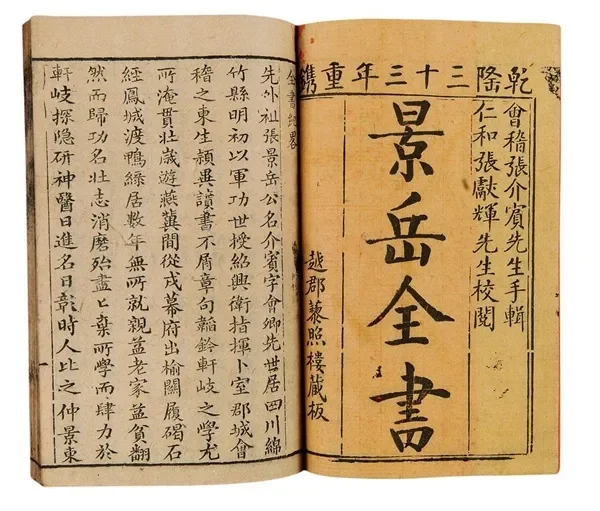 乾隆三十三年重鐫
會稽張介賓先生手輯
仁和張獻輝先生校閱
景岳全書
越郡藜照樓藏板
全書紀畧
先外祖張景岳公名介賓字會卿先世居四川綿
竹縣明初以軍功世授紹興衛指揮卜室郡城會
稽之東生穎異讀書不屑章句韜鈐軒岐之學尤
所淹貫壯歲遊燕冀間從戎幕府出榆關履碣石
經鳳城渡鴨綠居數年無所就親益老家益貧翻
然而歸功名壯志消磨殆盡匕棄所學而肆力於
軒岐探隱研神醫日進名日彰時人比之仲景東